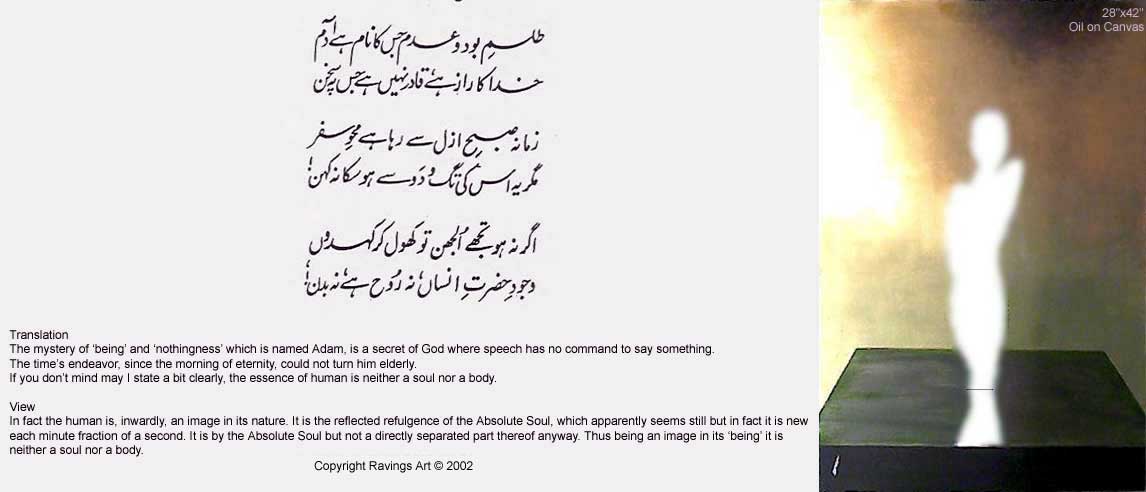 طلسمِ بود و عدم جس کا نام ہے آدم
خدا کا راز ہے، قادر نہیں ہے جس پہ سخن
زمانہ صبحِ ازل سے رہا ہے محوِ سفر
مگر یہ اس کی تگ و دَو سے ہو سکا نہ کہن!
اگر نہ ہو تجھے اُلجھن تو کھول کر کہدوں
وجودِ حضرتِ انساں نہ رُوح ہے نہ بدن!
Translation
The mystery of ‘being’ and ‘nothingness’ which is named Adam, is a secret of God where speech has no command to say something.
The time’s endeavor, since the morning of eternity, could not turn him elderly.
If you don’t mind may I state a bit clearly, the essence of human is neither a soul nor a body.
View
In fact the human is, inwardly, an image in its nature. It is the reflected refulgence of the Absolute Soul, which apparently seems still but in fact it is new
each minute fraction of a second. It is by the Absolute Soul but not a directly separated part thereof anyway. Thus being an image in its ‘being’ it is
neither a soul nor a body.
Copyright Ravings Art © 2002
28"x42"
Oil on Canvas